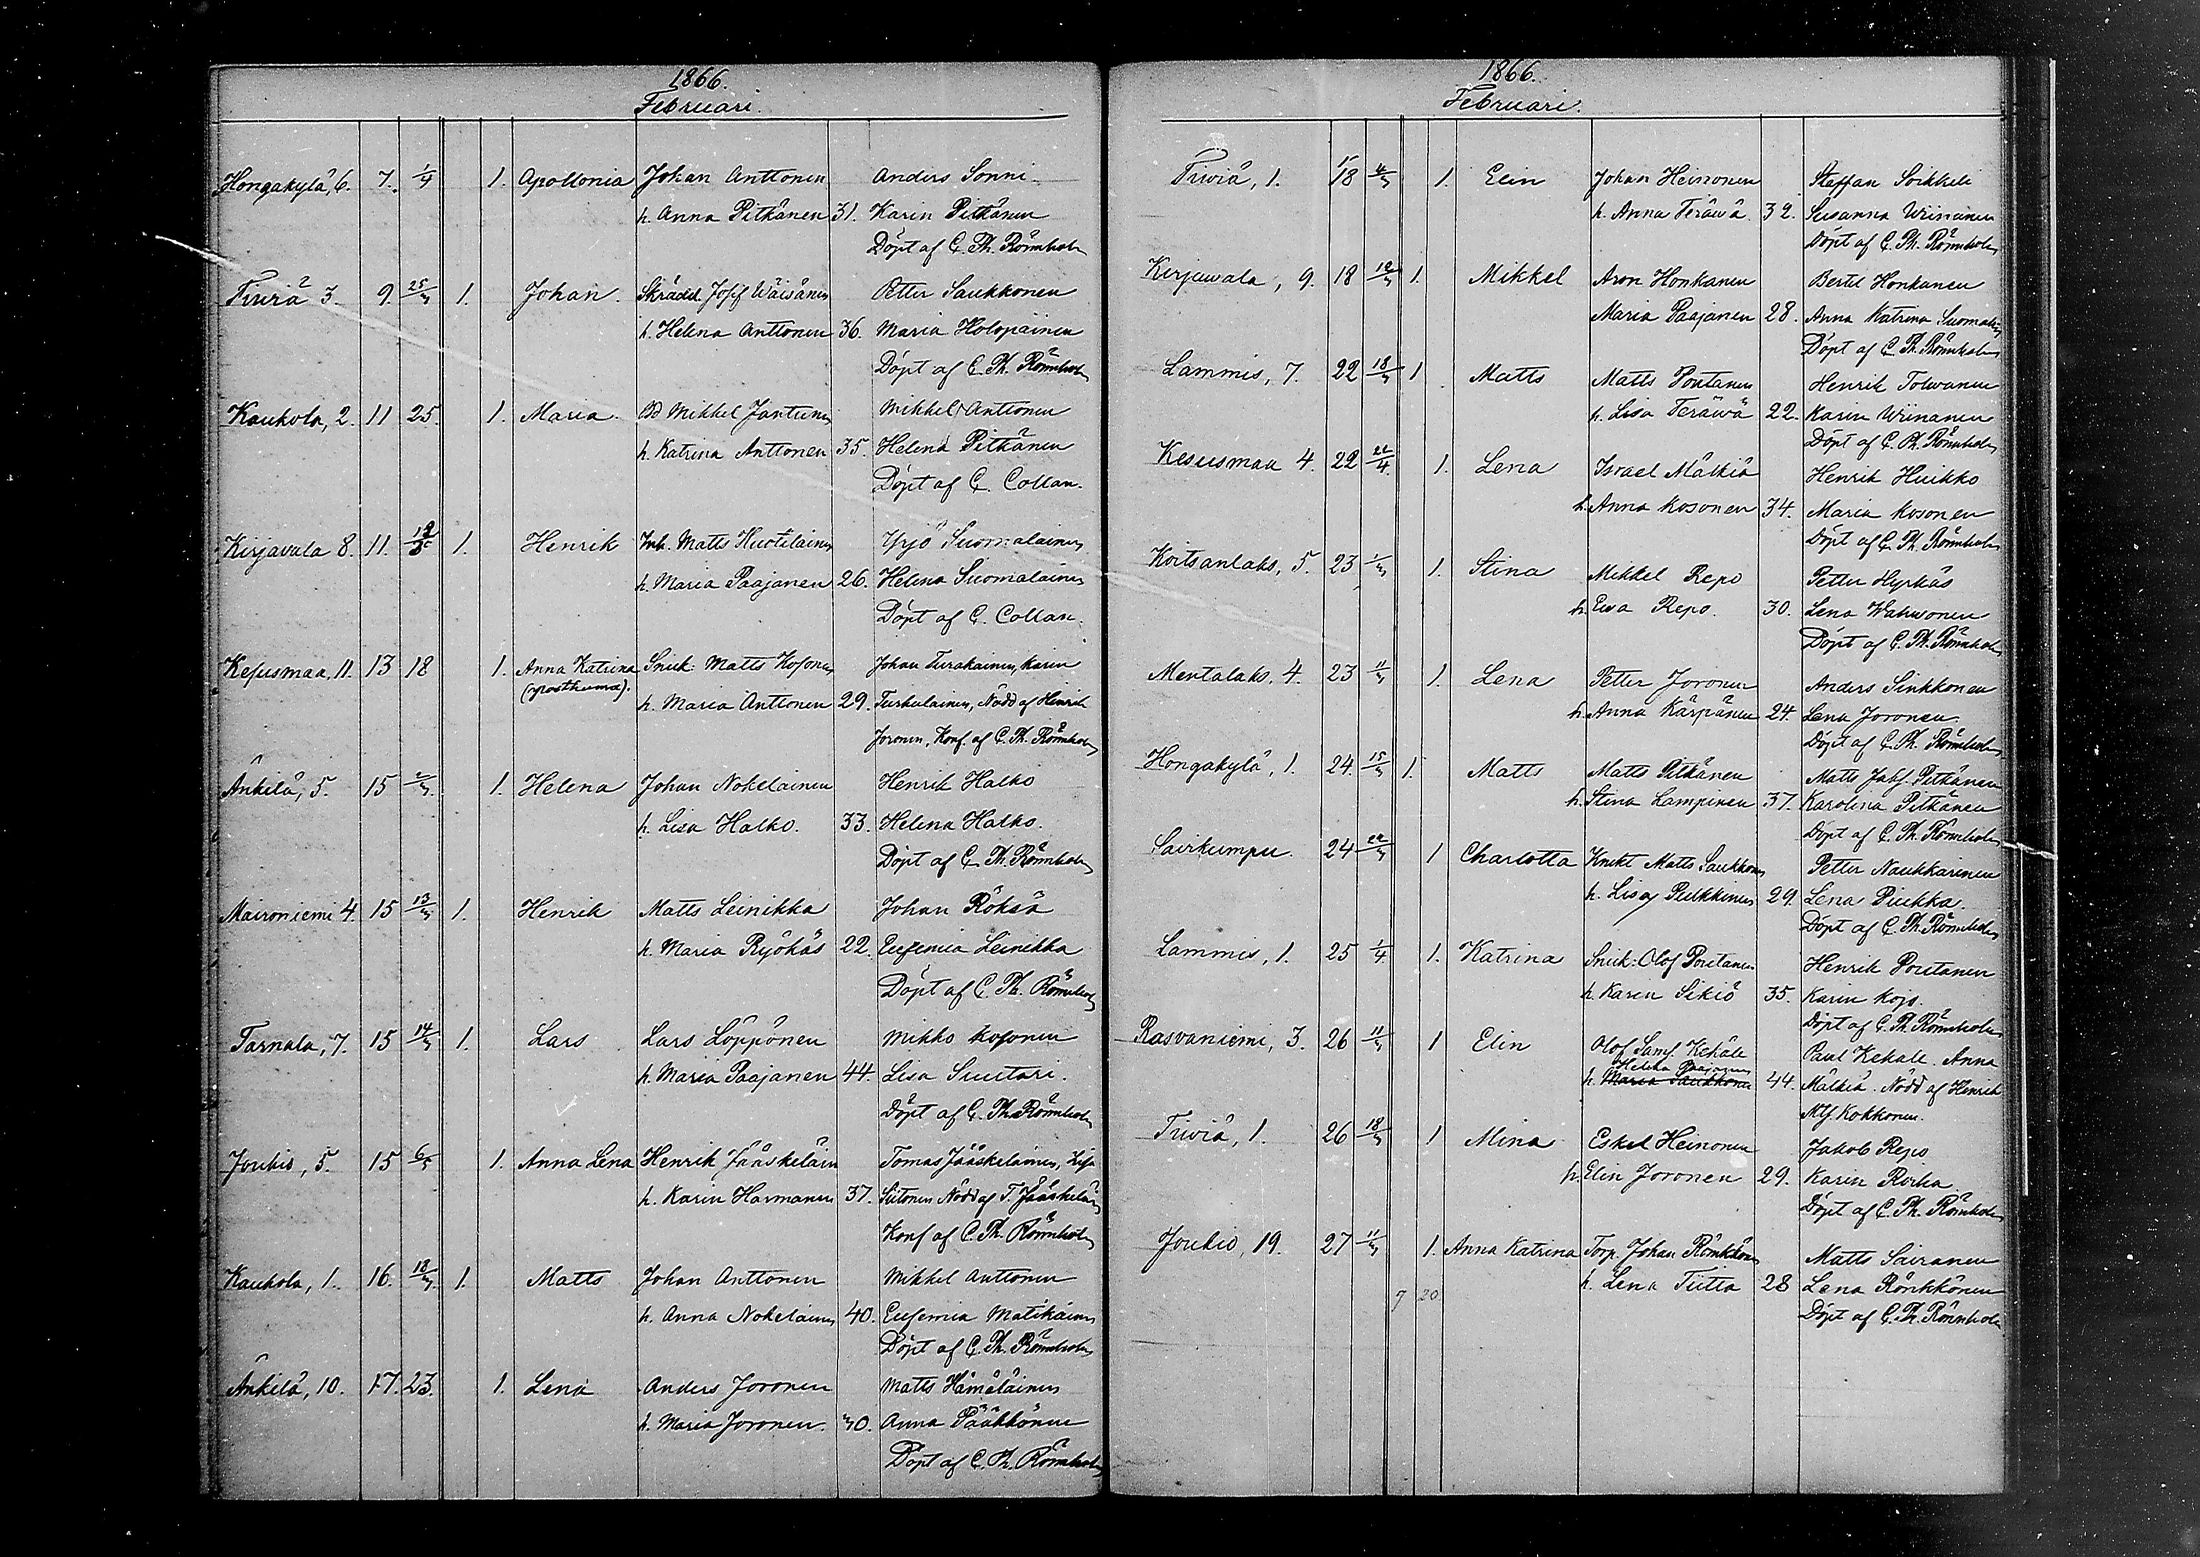 1866.
Februari.
Hongakylä, 6. 7. 1/4 1. Apollonia Johan Anttonen Anders Sonni
h. Anna Pitkänen 31. Karin Pitkänen
Döpt af C. Th. Rönnholm
Tiviä 3. 9. 25/3 1. Johan. Skrädd. Josef Wäisänen Petter Saukkonen
h. Helena Anttonen 36. Maria Holopainen
Döpt af C. Th. Rönnholm
Kaukola, 2. 11 25. 1. Maria. Bd Mikkel Jantunen Mikkel Anttonen
h. Katrina Anttonen 35. Helena Pitkänen
Döpt af C. Collan.
Kirjavala 8. 11. 1. Henrik Inh. Matts Huotilainen Yrjö Suomalainen
h. Maria Paajanen 26. Helena Suomalainen
Döpt af C. Collan.
Kesusmaa, 11. 13 18 1. Anna Katrina Snick: Matts Kosonen Johan Turakainen, Karin
(posthuma). h. Maria Anttonen 29. Nödd af Henrik
Joronen, Konf. af C. Th. Rönnholm
Änkilä, 5. 15 2/3. 1. Helena Johan Nokelainen Henrik Halko
h. Lisa Halko. 33. Helena Halko.
Döpt af C. Th. Rönnholm
Maironiemi 4. 15 13/3 1. Henrik Matts Leinikka Johan Röksä
h. Maria Ryökäs 22. Eufemia Leinikka
Döpt af C. Th. Rönnholm
Tarnala, 7. 15 14/3 1. Lars Lars Löppönen Mikko Kosonen
h. Maria Paajanen 44. Lisa Suutari.
Döpt af C. Th. Rönnholm
Joukio, 5. 15 6/5 1. Anna Lena Henrik Jääskeläin Tomas Jääskeläinen, Lisa
h. Karin Harmanen 37. Siitonen Nödd af T. Jääskeläin
Konf af C. Th. Rönnholm
Kaukola, 1. 16. 18/3. 1. Matts Johan Anttonen Mikkel Anttonen
h. Anna Nokelainen 40. Eufemia Matikainen
Döpt af C. Th. Rönnholm
Änkilä, 10. 17. 23. 1. Lena Anders Joronen Matts Hämäläinen
h. Maria Joronen. 40. Anna Pääkkönen
Döpt af C. Th. Rönnholm
1866.
Februari.
Tiviä, 1. 18 4/3 1. Elin Johan Heinonen Staffan Soikkeli
h. Anna Teräwä 32. Susanna Wiinanen
Döpt af C. Th. Rönnholm
Kirjawala, 9. 18 18/3 1. Mikkel Aron Honkanen Bertil Honkanen
Maria Paajanen 28. Anna Katrina Suomalain
Döpt af C. Th. Rönnholm
Lammis, 7. 22 18/3 1 Matts Matts Poutanen Henrik Tolwanen
h. Lisa Teräwä 22. Karin Wiinanen
Döpt af C. Th. Rönnholm
Kesusmaa 4. 22 22/4. 1. Lena Israel Mälkiä Henrik Huikko
h. Anna Kosonen 34. Maria Kosonen
Döpt af C. Th. Rönnholm
Koitsanlaks, 5. 23 1/3 1. Stina Mikkel Repo Petter Hyrkäs
h. Ewa Repo. 30. Lena Wahwonen
Döpt af C. Th. Rönnholm
Mentalaks, 4. 23 11/3 1. Lena Petter Joronen Anders Sinkkonen
h. Anna Kärpänen 24. Lena Joronen.
Döpt af C. Th. Rönnholm
Hongakylä, 1. 24. 15/3 1. Matts Matts Pitkänen Matts Jakf. Pitkänen
h. Stina Lampinen 37. Karolina Pitkänen
Döpt af C. Th. Rönnholm
Sairkumpu. 24 22/3 1 Charlotta Knekt Matts Saukkonen Petter Naukkarinen
h. Lisa Pulkkinen 29. Lena Piukka.
Döpt af C. Th. Rönnholm
Lammis, 1. 25 1/4 1. Katrina Snick: Olof Poutanen Henrik Poutanen
h. Karin Sikiö 35. Karin Kojo.
Döpt af C. Th. Rönnholm
Rasvaniemi, 3. 26 11/3 1 Elin Olof Samf. Kekäle Paul Kekäle. Anna
Helena Paajanen
h. Maria Saukkonen 44. Mälkiä. Nödd af Henrik
Mf. Kokkonen.
Tiviä, 1. 26 18/3 1 Mina Eskel Heinonen Jakob Repo
h. Elin Joronen 29. Karin Roiha
Döpt af C. Th. Rönnholm
Joukio, 19. 27 11/3 1. Anna Katrina Torp. Johan Rönkkönen Matts Sairanen
h. Lena Tiitta 28 Lena Rönkkönen
7 20. Döpt af C. Th. Rönnholm